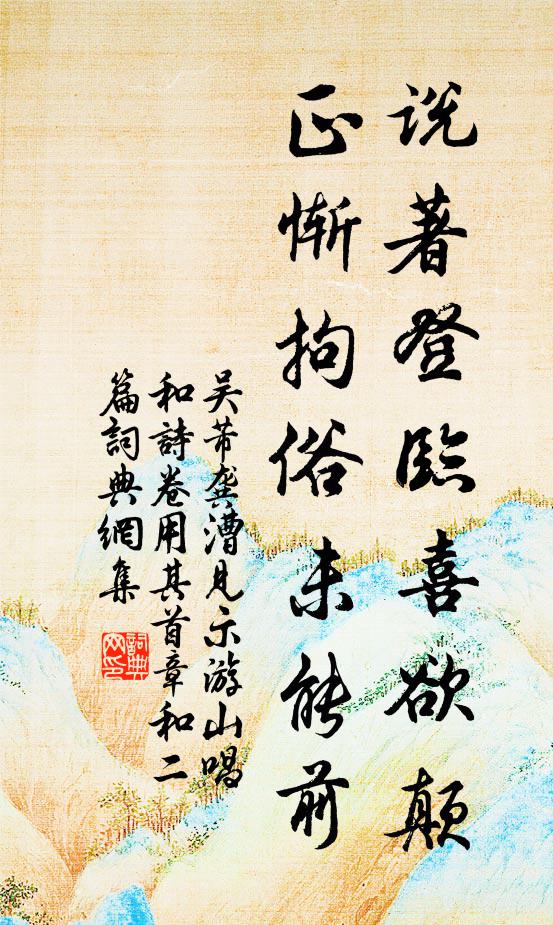 説著登臨喜欲顛
正慚拘俗未能前
吴芾龚漕見示游山唱
和詩卷用其首章和二
篇詞典網集
詞典
网印